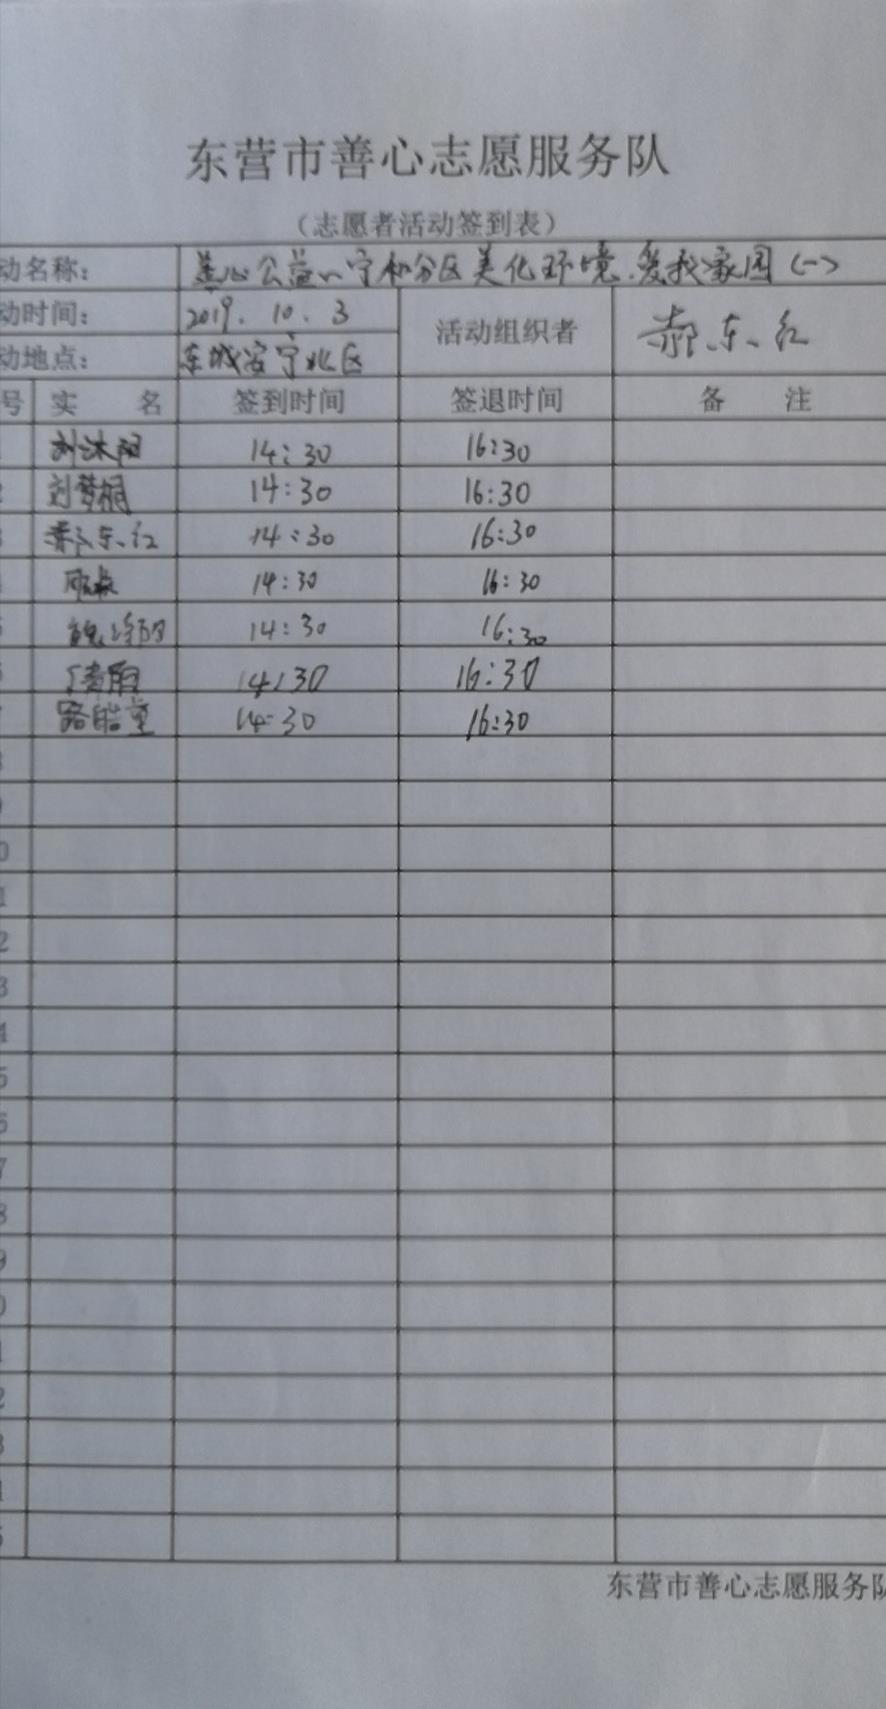 东营市善心志愿服务队
（志愿者活动签到表）
动名称： 善心公益 安和分区美化环境.爱我家园（一）
动时间： 2019. 10. 3 活动组织者 郝东红
动地点： 东城安宁北区
号 实 名 签到时间 签退时间 备 注
刘沐阳 14:30 16:30
2 刘梦桐 14:30 16:30
3 郝东红 14:30 16:30
14:30 16:30
5 14:30 16:30
6 14:30 16:30
7 路皓童 14:30 16:30
8
9
0
1
2
3
4
5
6
7
8
9
0
1
2
3
4
5
东营市善心志愿服务队